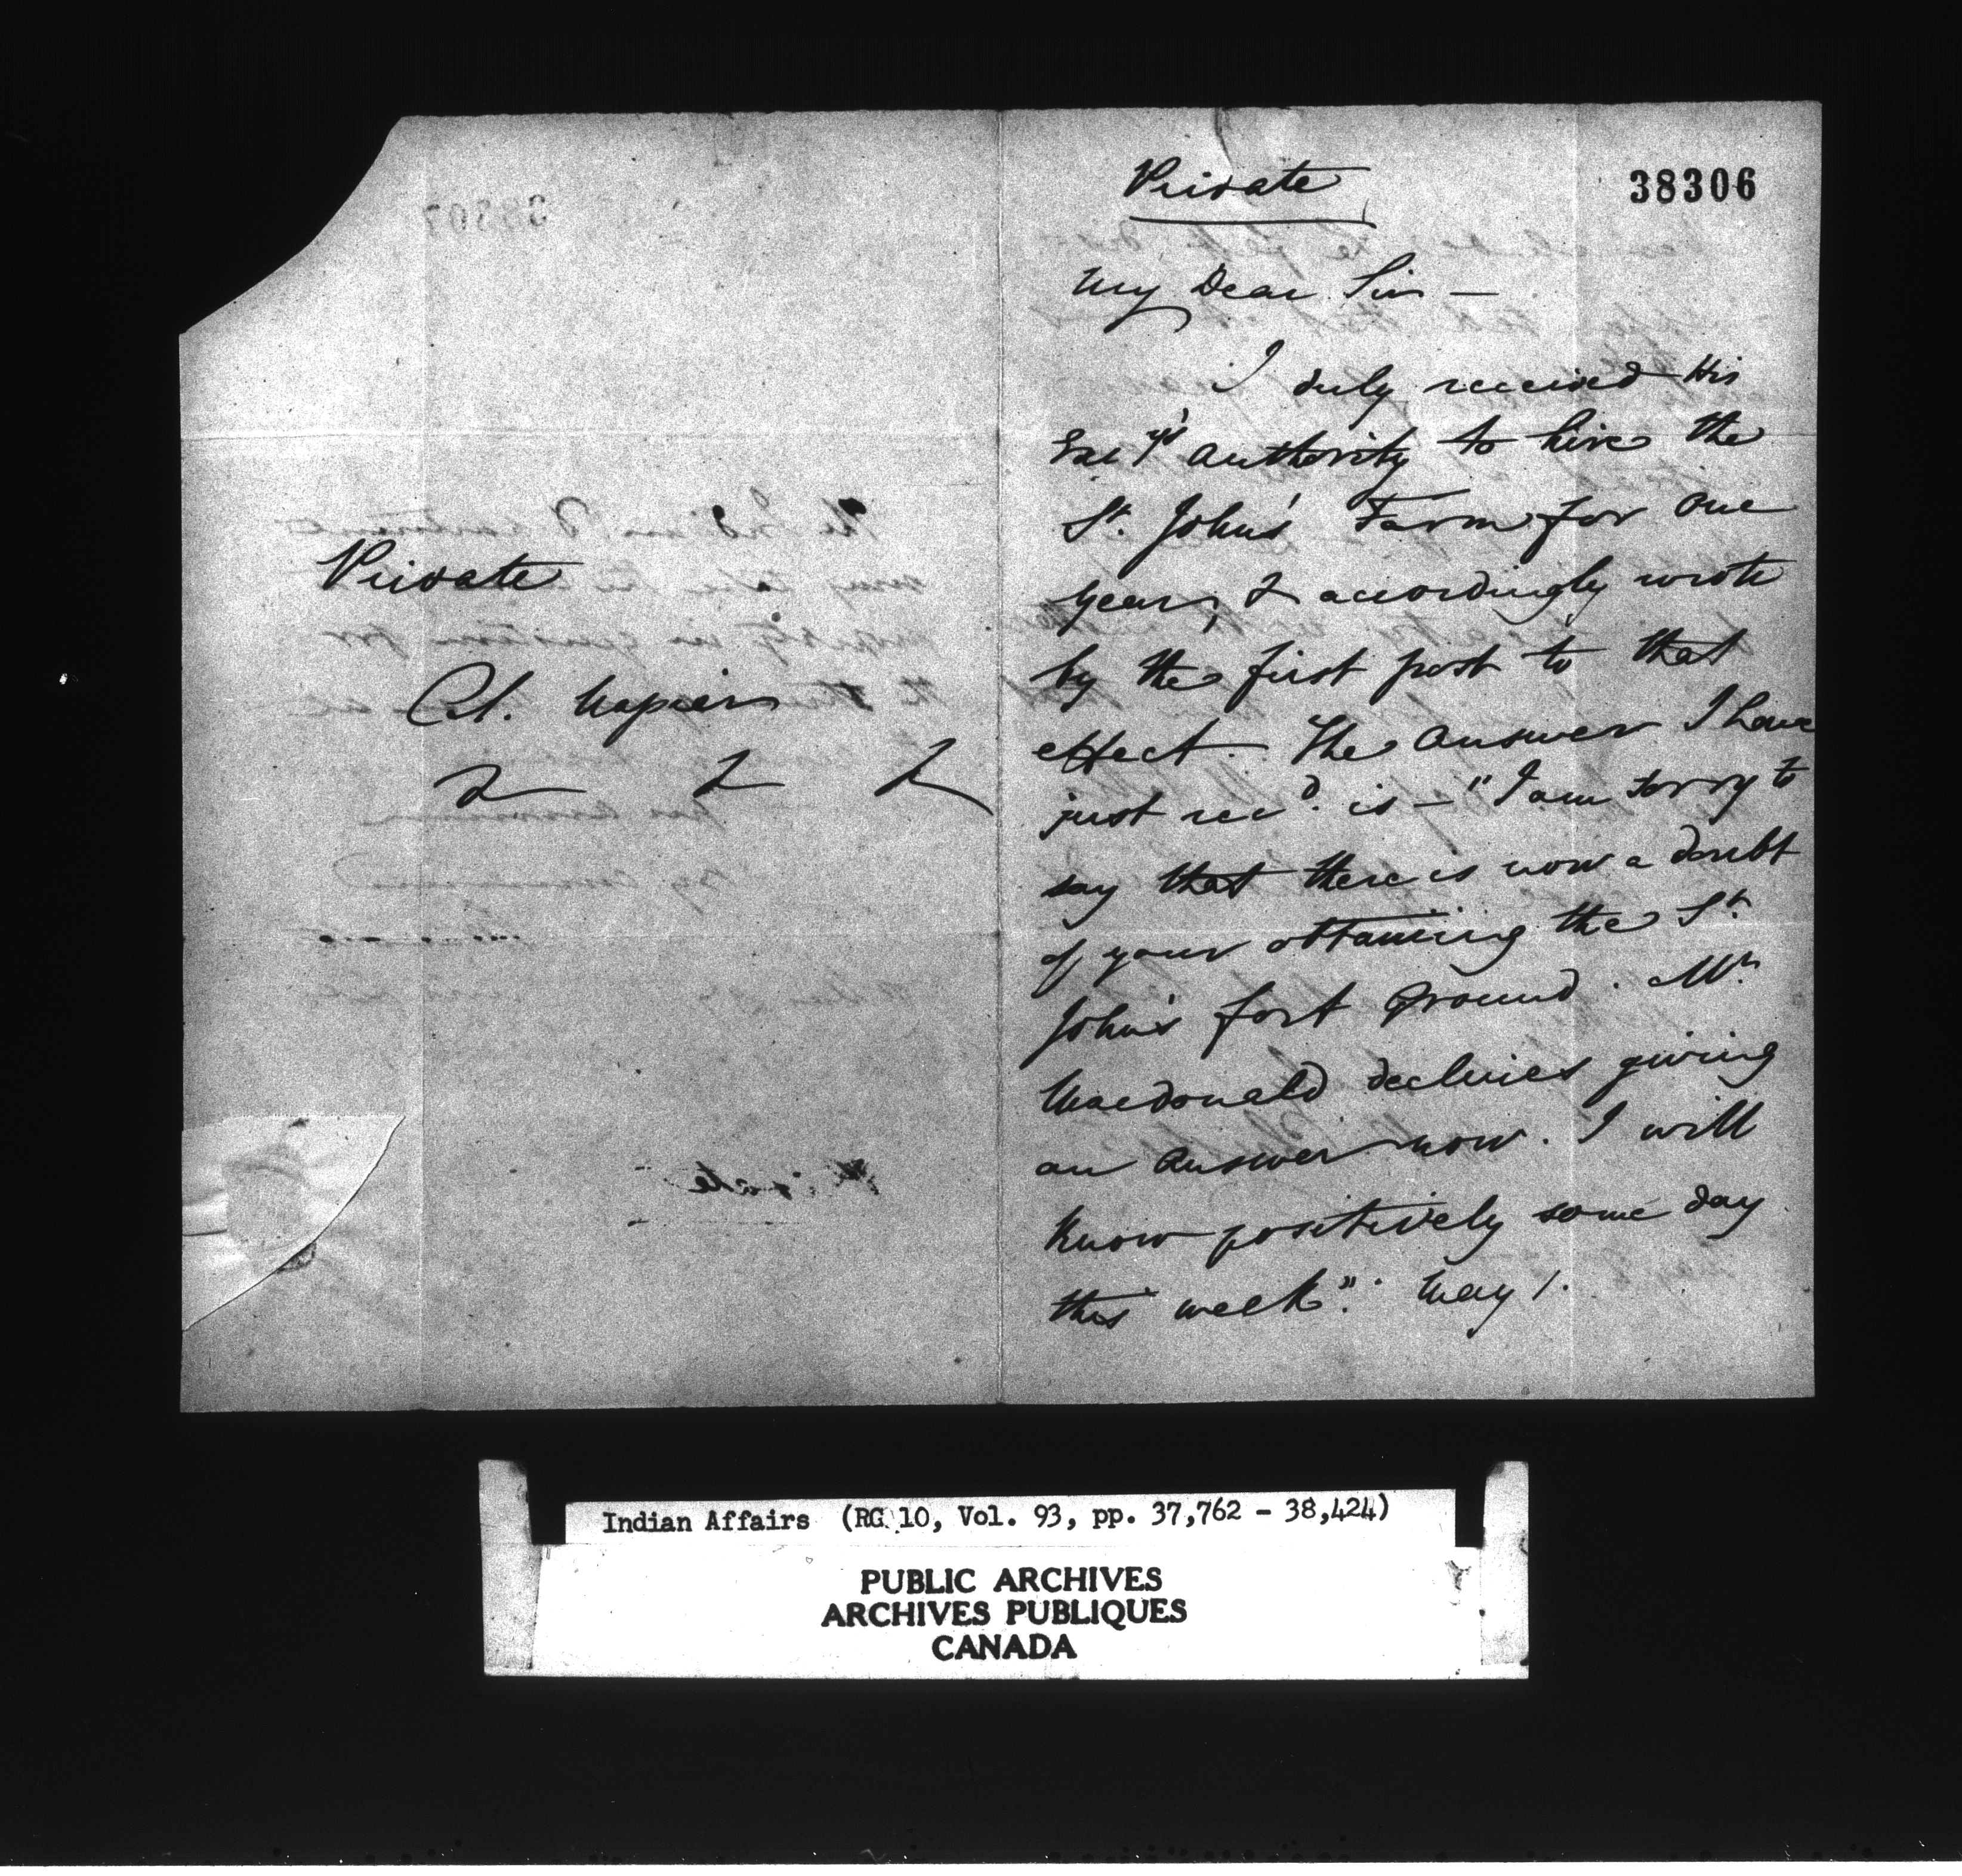 Private
Col. Napier
&c &c &c
38306
Private
My Dear Sir —
I duly received His
Exc^y's authority to hire the
St. John's Farm for one
year, & accordingly wrote
by the first post to that
effect. The answer I have
just rec^d. is — "I am sorry to
say that there is now a doubt
of your obtaining the St.
John's fort ground. Mr.
Macdonald declines giving
an answer now. I will
know positively some day
this week". May 1.
Indian Affairs (RG 10, Vol. 93, pp. 37,762 - 38,424)
PUBLIC ARCHIVES
ARCHIVES PUBLIQUES
CANADA